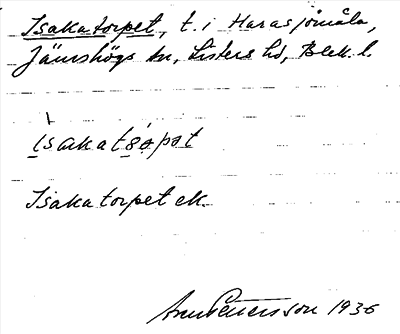 Isakatorpet, t. i Harasjömåla,
Jämshögs sn, Listers hd, Blek. l.
isakatså̀pat
Isakatorpet ek.
Pettersson 1936